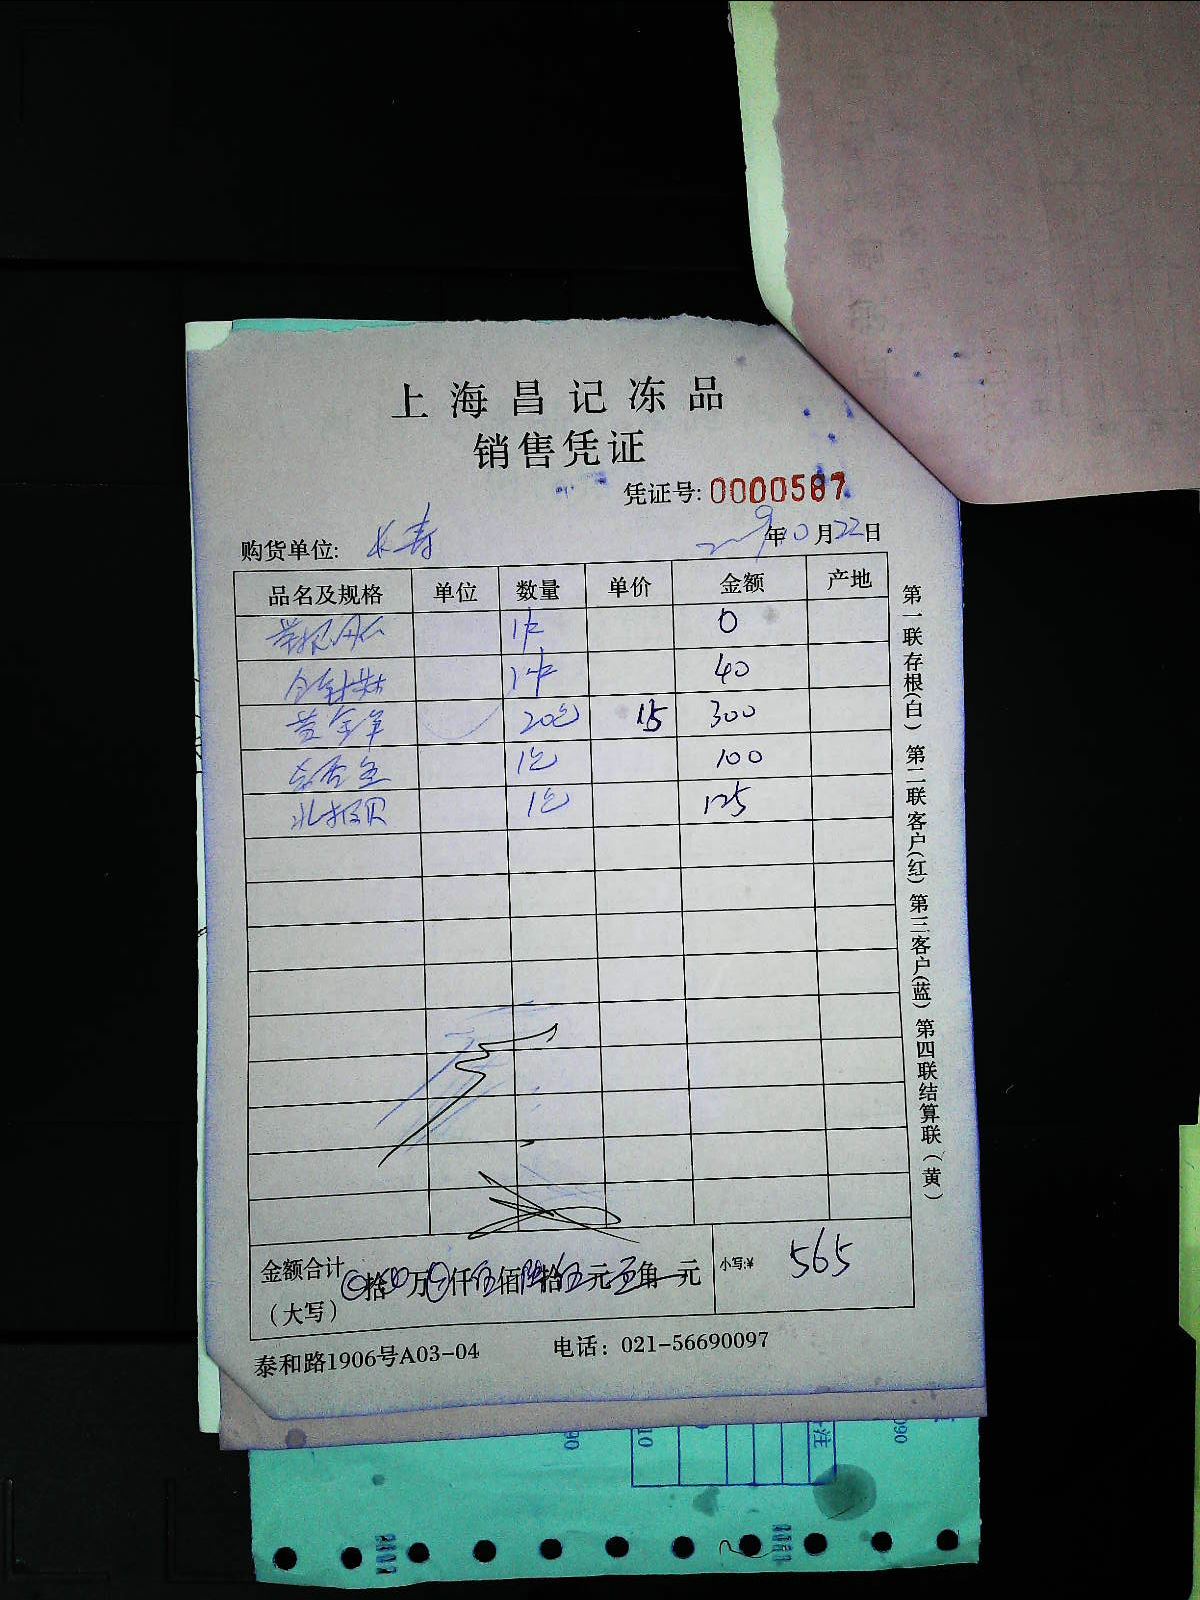 上海昌记冻品
销售凭证
凭证号: 0000587
购货单位: 长寿 年10月22日
品名及规格 单位 数量 单价 金额 产地
0
40
20包 15 300
1包 100
北极贝 1包 125
金额合计 拾 万 仟伍佰陆拾伍元 角 元 小写:¥ 565
(大写)
泰和路1906号A03-04 电话: 021-56690097
第一联存根(白) 第二联客户(红) 第三客户(蓝) 第四联结算联(黄)